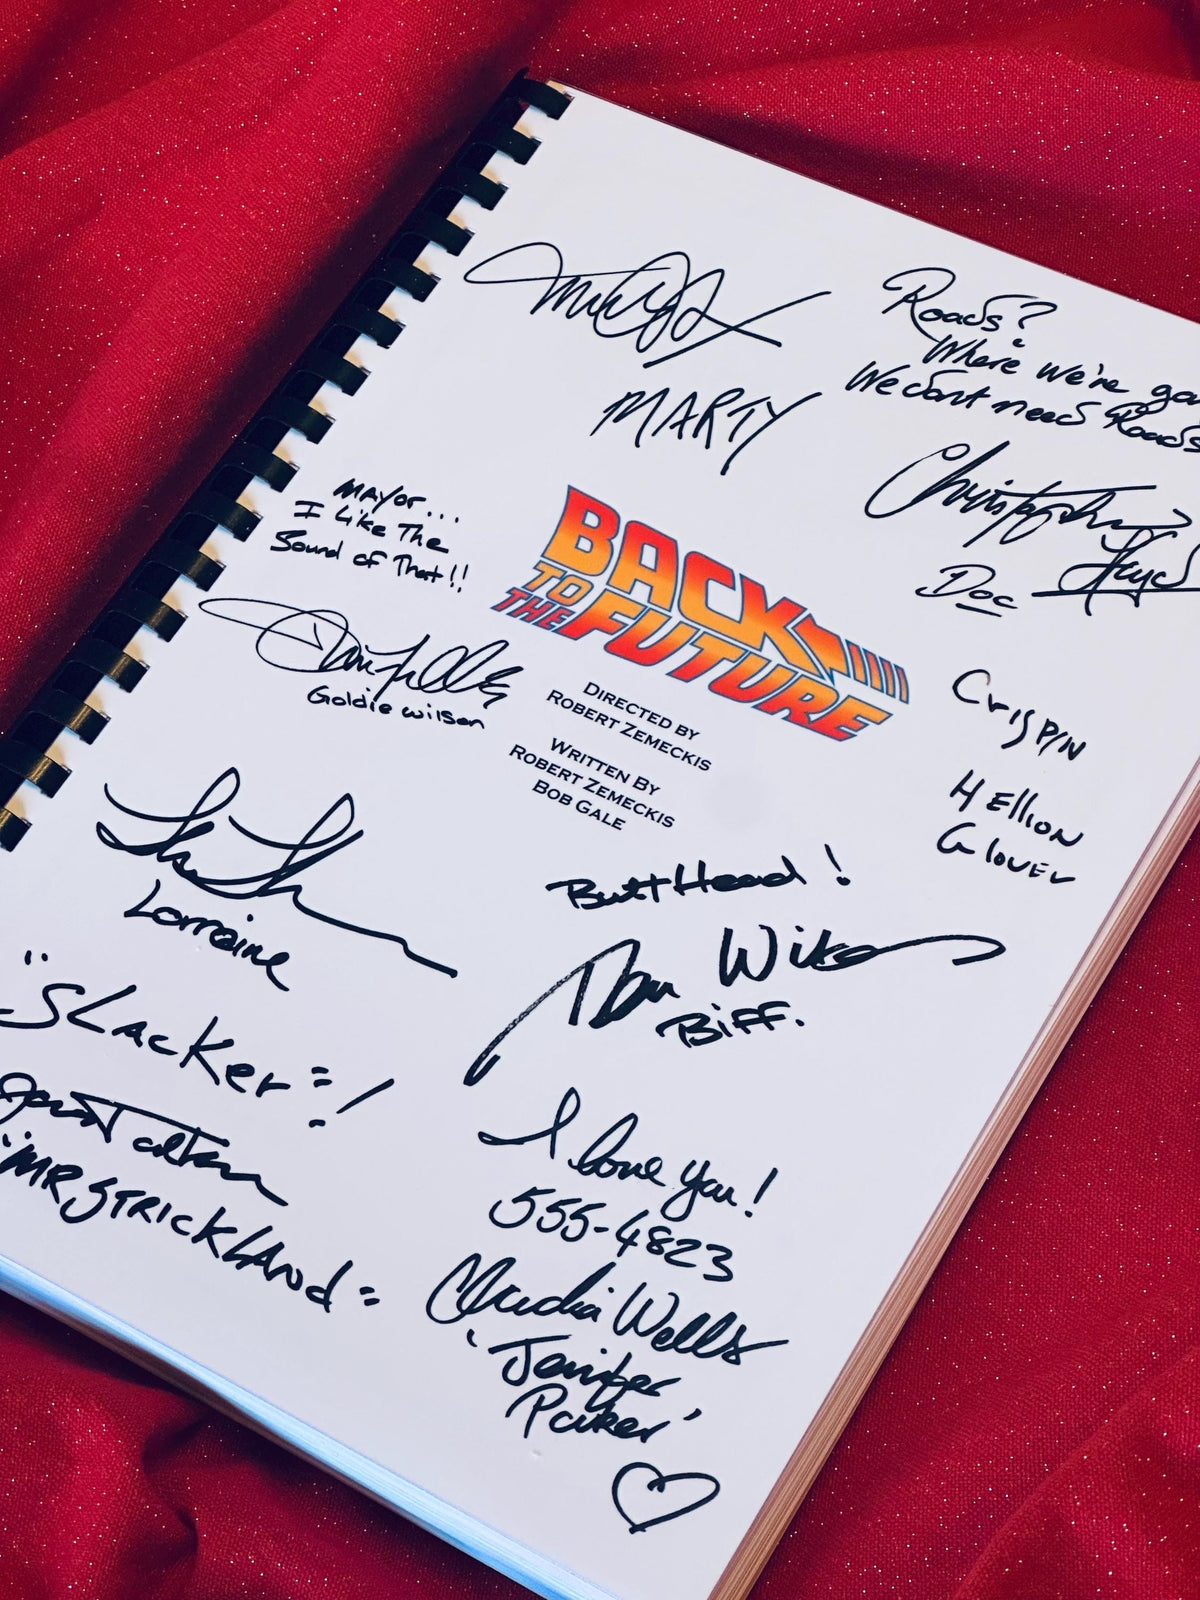 MARTY
Roads?
Where we're go
We dont need Roads
Christopher
Lloyd
Doc
Mayor...
I Like The
Sound of That!!
Goldie Wilson
BACK
TO
THE
FUTURE
DIRECTED BY
ROBERT ZEMECKIS
WRITTEN BY
ROBERT ZEMECKIS
BOB GALE
Crispin
Hellion
Glover
Lorraine
Butt Head!
Biff.
"Slacker"!
"MR STRICKLAnd"
I love you!
555-4823
Claudia Wells
'Jennifer
Parker'